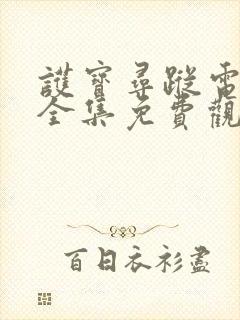 護寶尋蹤電
全集免費觀
百日衣衫盡